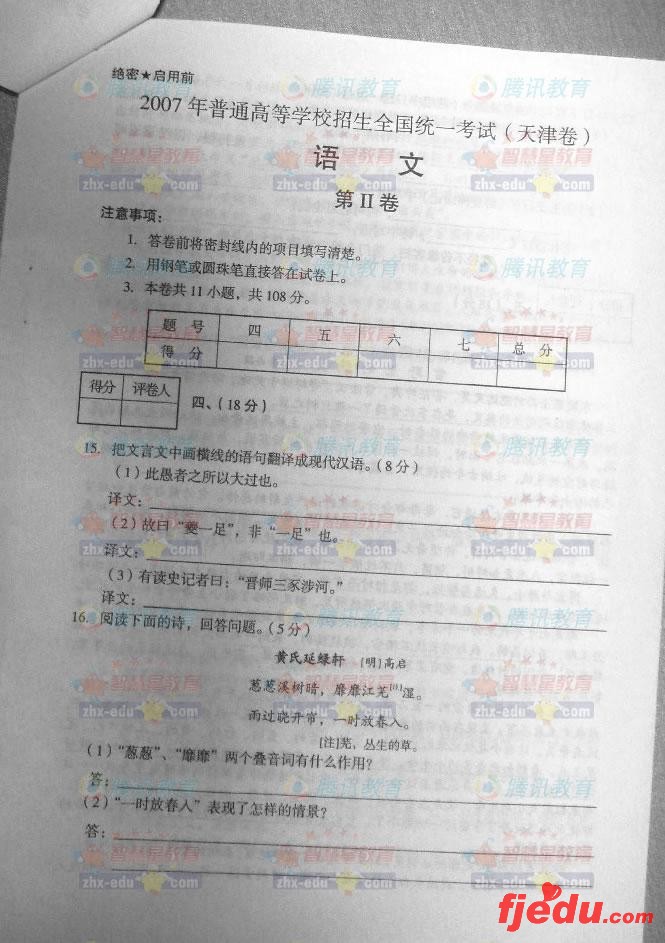 绝密★启用前
2007年普通高等学校招生全国统一考试（天津卷）
语 文
第Ⅱ卷
注意事项：
1. 答卷前将密封线内的项目填写清楚。
2. 用钢笔或圆珠笔直接答在试卷上。
3. 本卷共11小题，共108分。
题 号 四 五 六 七 总 分
得 分
得分 评卷人
四、（18分）
15. 把文言文中画横线的语句翻译成现代汉语。（8分）
（1）此愚者之所以大过也。
译文：
（2）故曰“夔一足”，非“一足”也。
译文：
（3）有读史记者曰：“晋师三豕涉河。”
译文：
16. 阅读下面的诗，回答问题。（5分）
黄氏延绿轩 [明]高启
葱葱溪树暗，靡靡江芜[注]湿。
雨过晓开帘，一时放春入。
[注]芜，丛生的草。
（1）“葱葱”、“靡靡”两个叠音词有什么作用？
答：
（2）“一时放春入”表现了怎样的情景？
答：
腾讯教育
智慧星教育
zhx-edu.com
fjedu.com